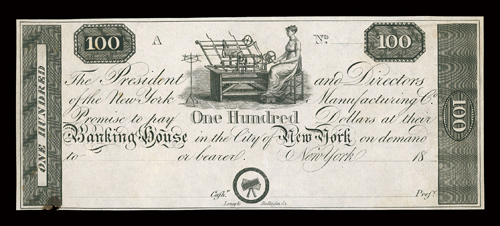 100 A No. 100
The President and Directors
of the New York Manufacturing Co.
Promise to pay One Hundred Dollars at their
Banking House in the City of New York on demand
to or bearer. New York 18
Cashr. Prest.
ONE HUNDRED
100